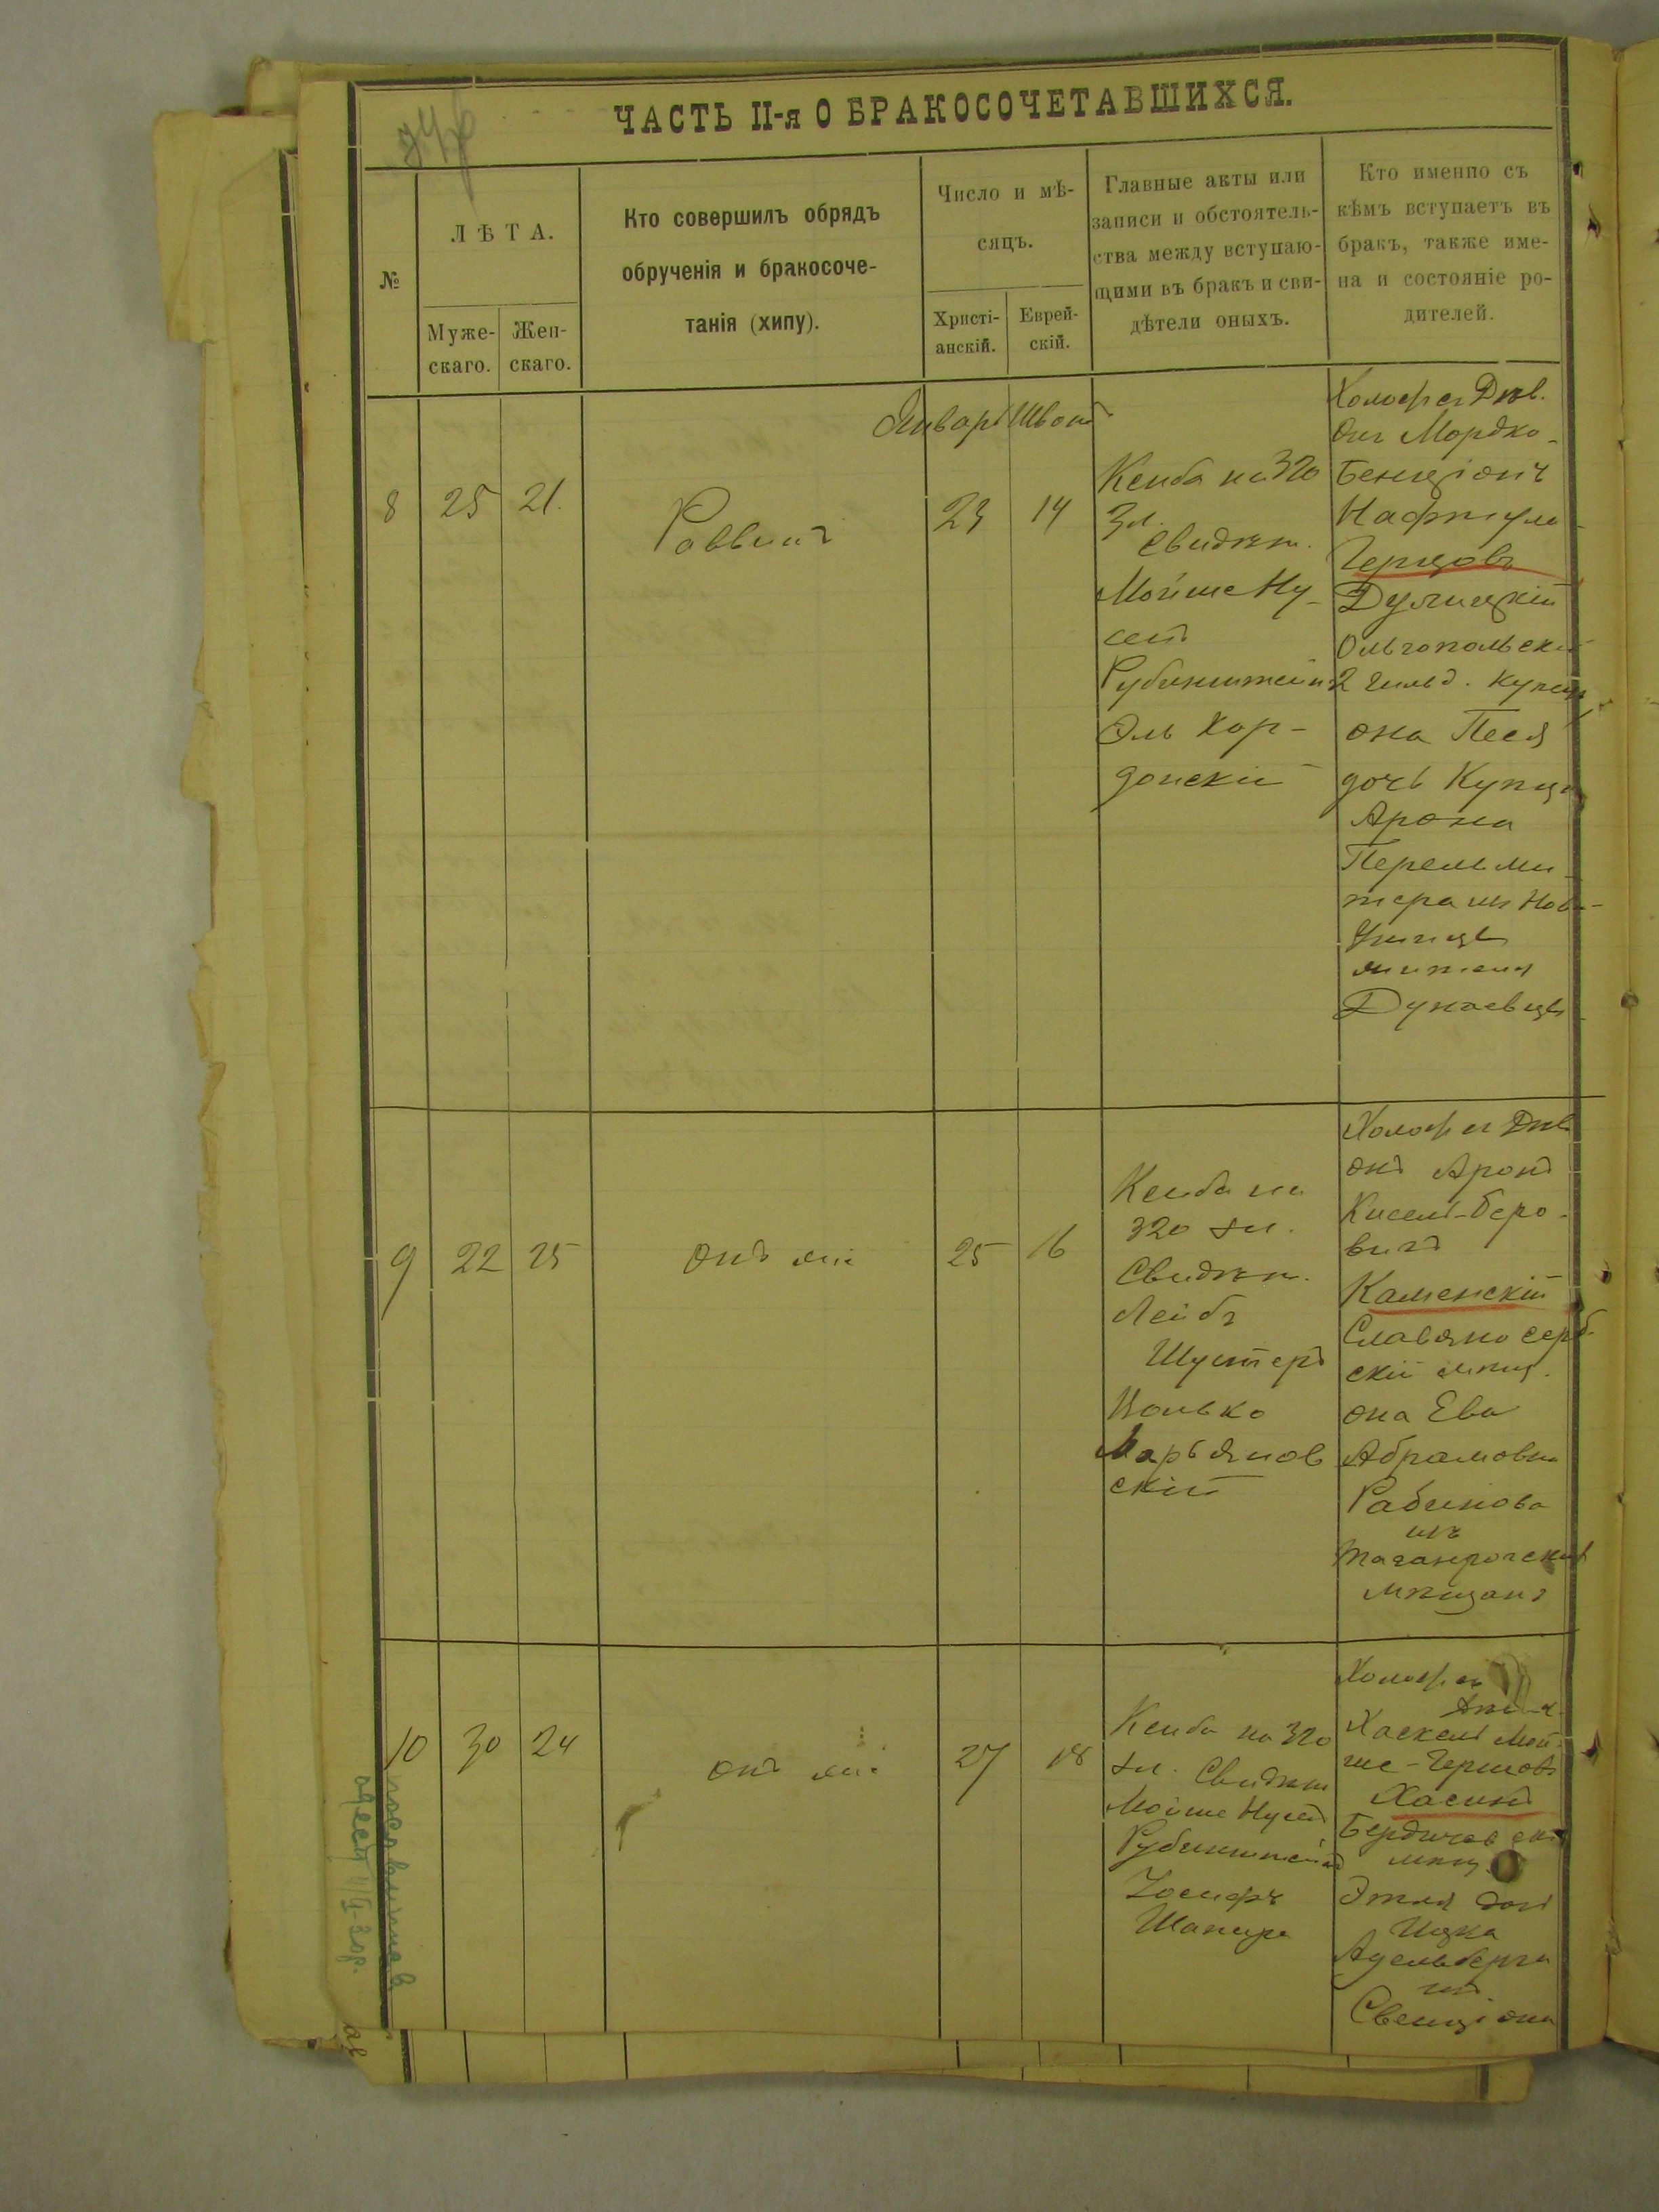 ЧАСТЬ II-я О БРАКОСОЧЕТАВШИХСЯ.
№
ЛѢТА.
Муже-
скаго.
Жен-
скаго.
Кто совершилъ обрядъ
обрученія и бракосоче-
танія (хипу).
Число и мѣ-
сяцъ.
Христі-
анскій.
Еврей-
скій.
Главные акты или
записи и обстоятель-
ства между вступаю-
щими въ бракъ и сви-
дѣтели оныхъ.
Кто именно съ
кѣмъ вступаетъ въ
бракъ, также име-
на и состояніе ро-
дителей.
Январь Шватъ
8 25 21.
Раввинъ
23 14
Ксиба на 320
Зл.
Свидѣт.
Мойше Ну-
сенъ
Рубинштейнъ
Эль Хор-
донскій
Холост съ Дѣв.
Онъ Мордко-
Бенціонъ
Нафтула
Герцовъ
Дулицкій
Ольгопольскій
2 гильд. купец
она Песя
дочь Купца
Арона
Перельми-
тера изъ Нов-
Ушицъ
жителя
Дунаевцы
9 22 25
Онъ же
25 16
Ксиба на
320 зл.
Свидѣт.
Лейбъ
Шустеръ
Ицько
Марьянов
скій
Холост съ Дѣв
онъ Аронъ
Кисель-Беро-
вичъ
Каменскій
Славяносерб-
скій мѣщ.
она Ева
Абрамовна
Рабинова
изъ
Таганрогскихъ
мѣщанъ
10 30 24
онъ же
27 18
Ксиба на 320
зл. Свидѣт
Мойше Нусенъ
Рубинштейнъ
Іосифъ
Шапиро
Холост съ
Хаскель Мой-
ше-Гершовъ
Хасинъ
Бердичевскій
мѣщ.
Этля дочь
Ицка
Адельберга
изъ
Свенціона